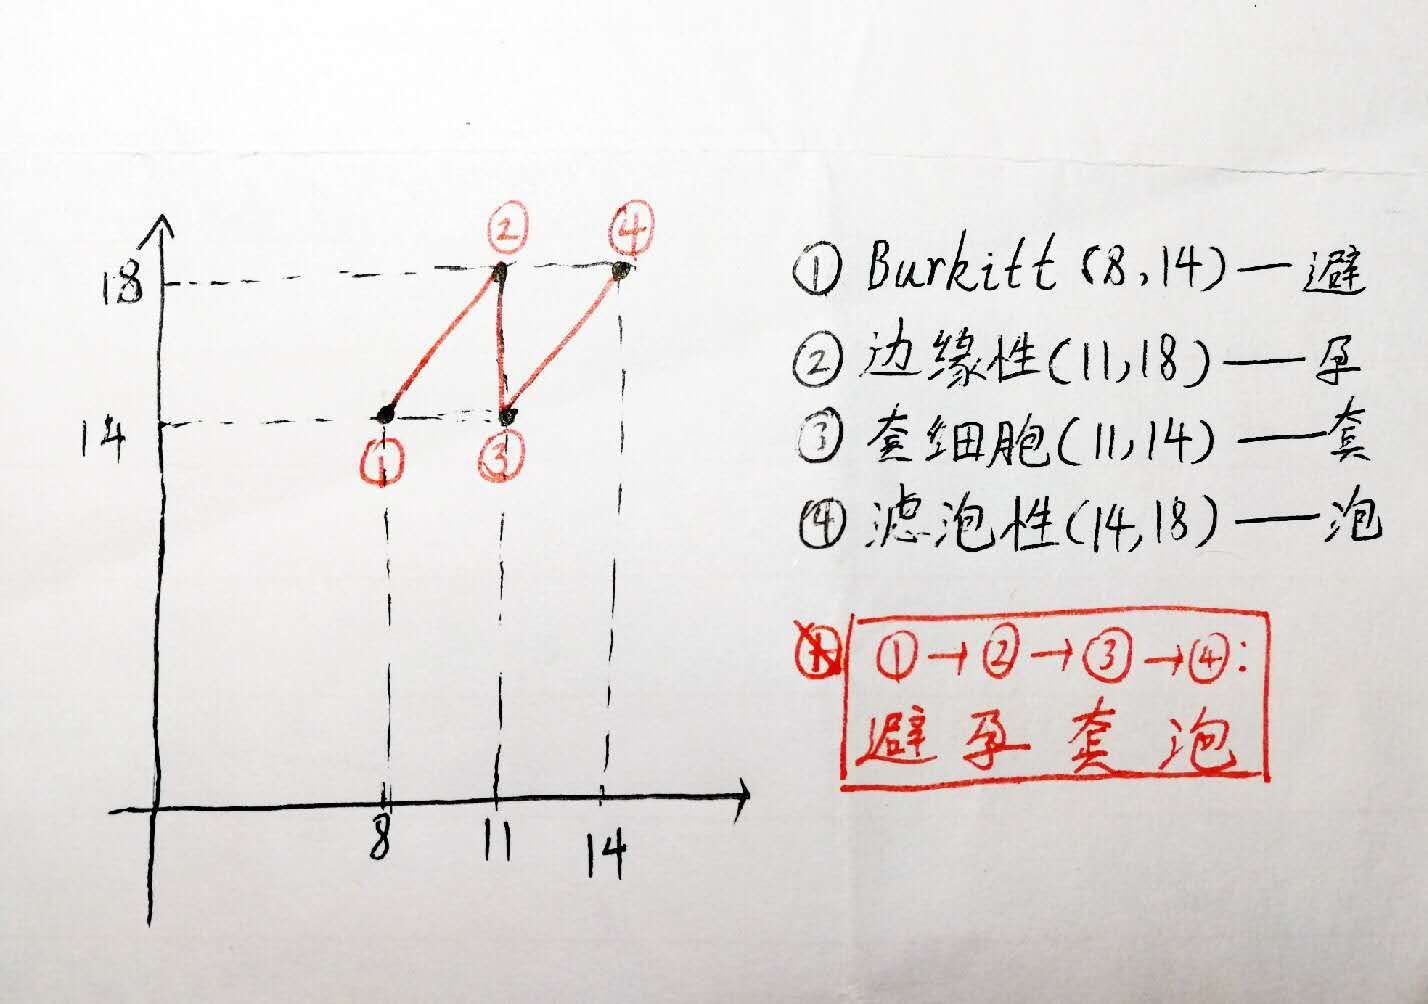 18
14
8
11
14
②
④
①
③
① Burkitt (8,14) — 避
② 边缘性(11,18) — 孕
③ 套细胞(11,14) — 套
④ 滤泡性(14,18) — 泡
①→②→③→④:
避孕套泡